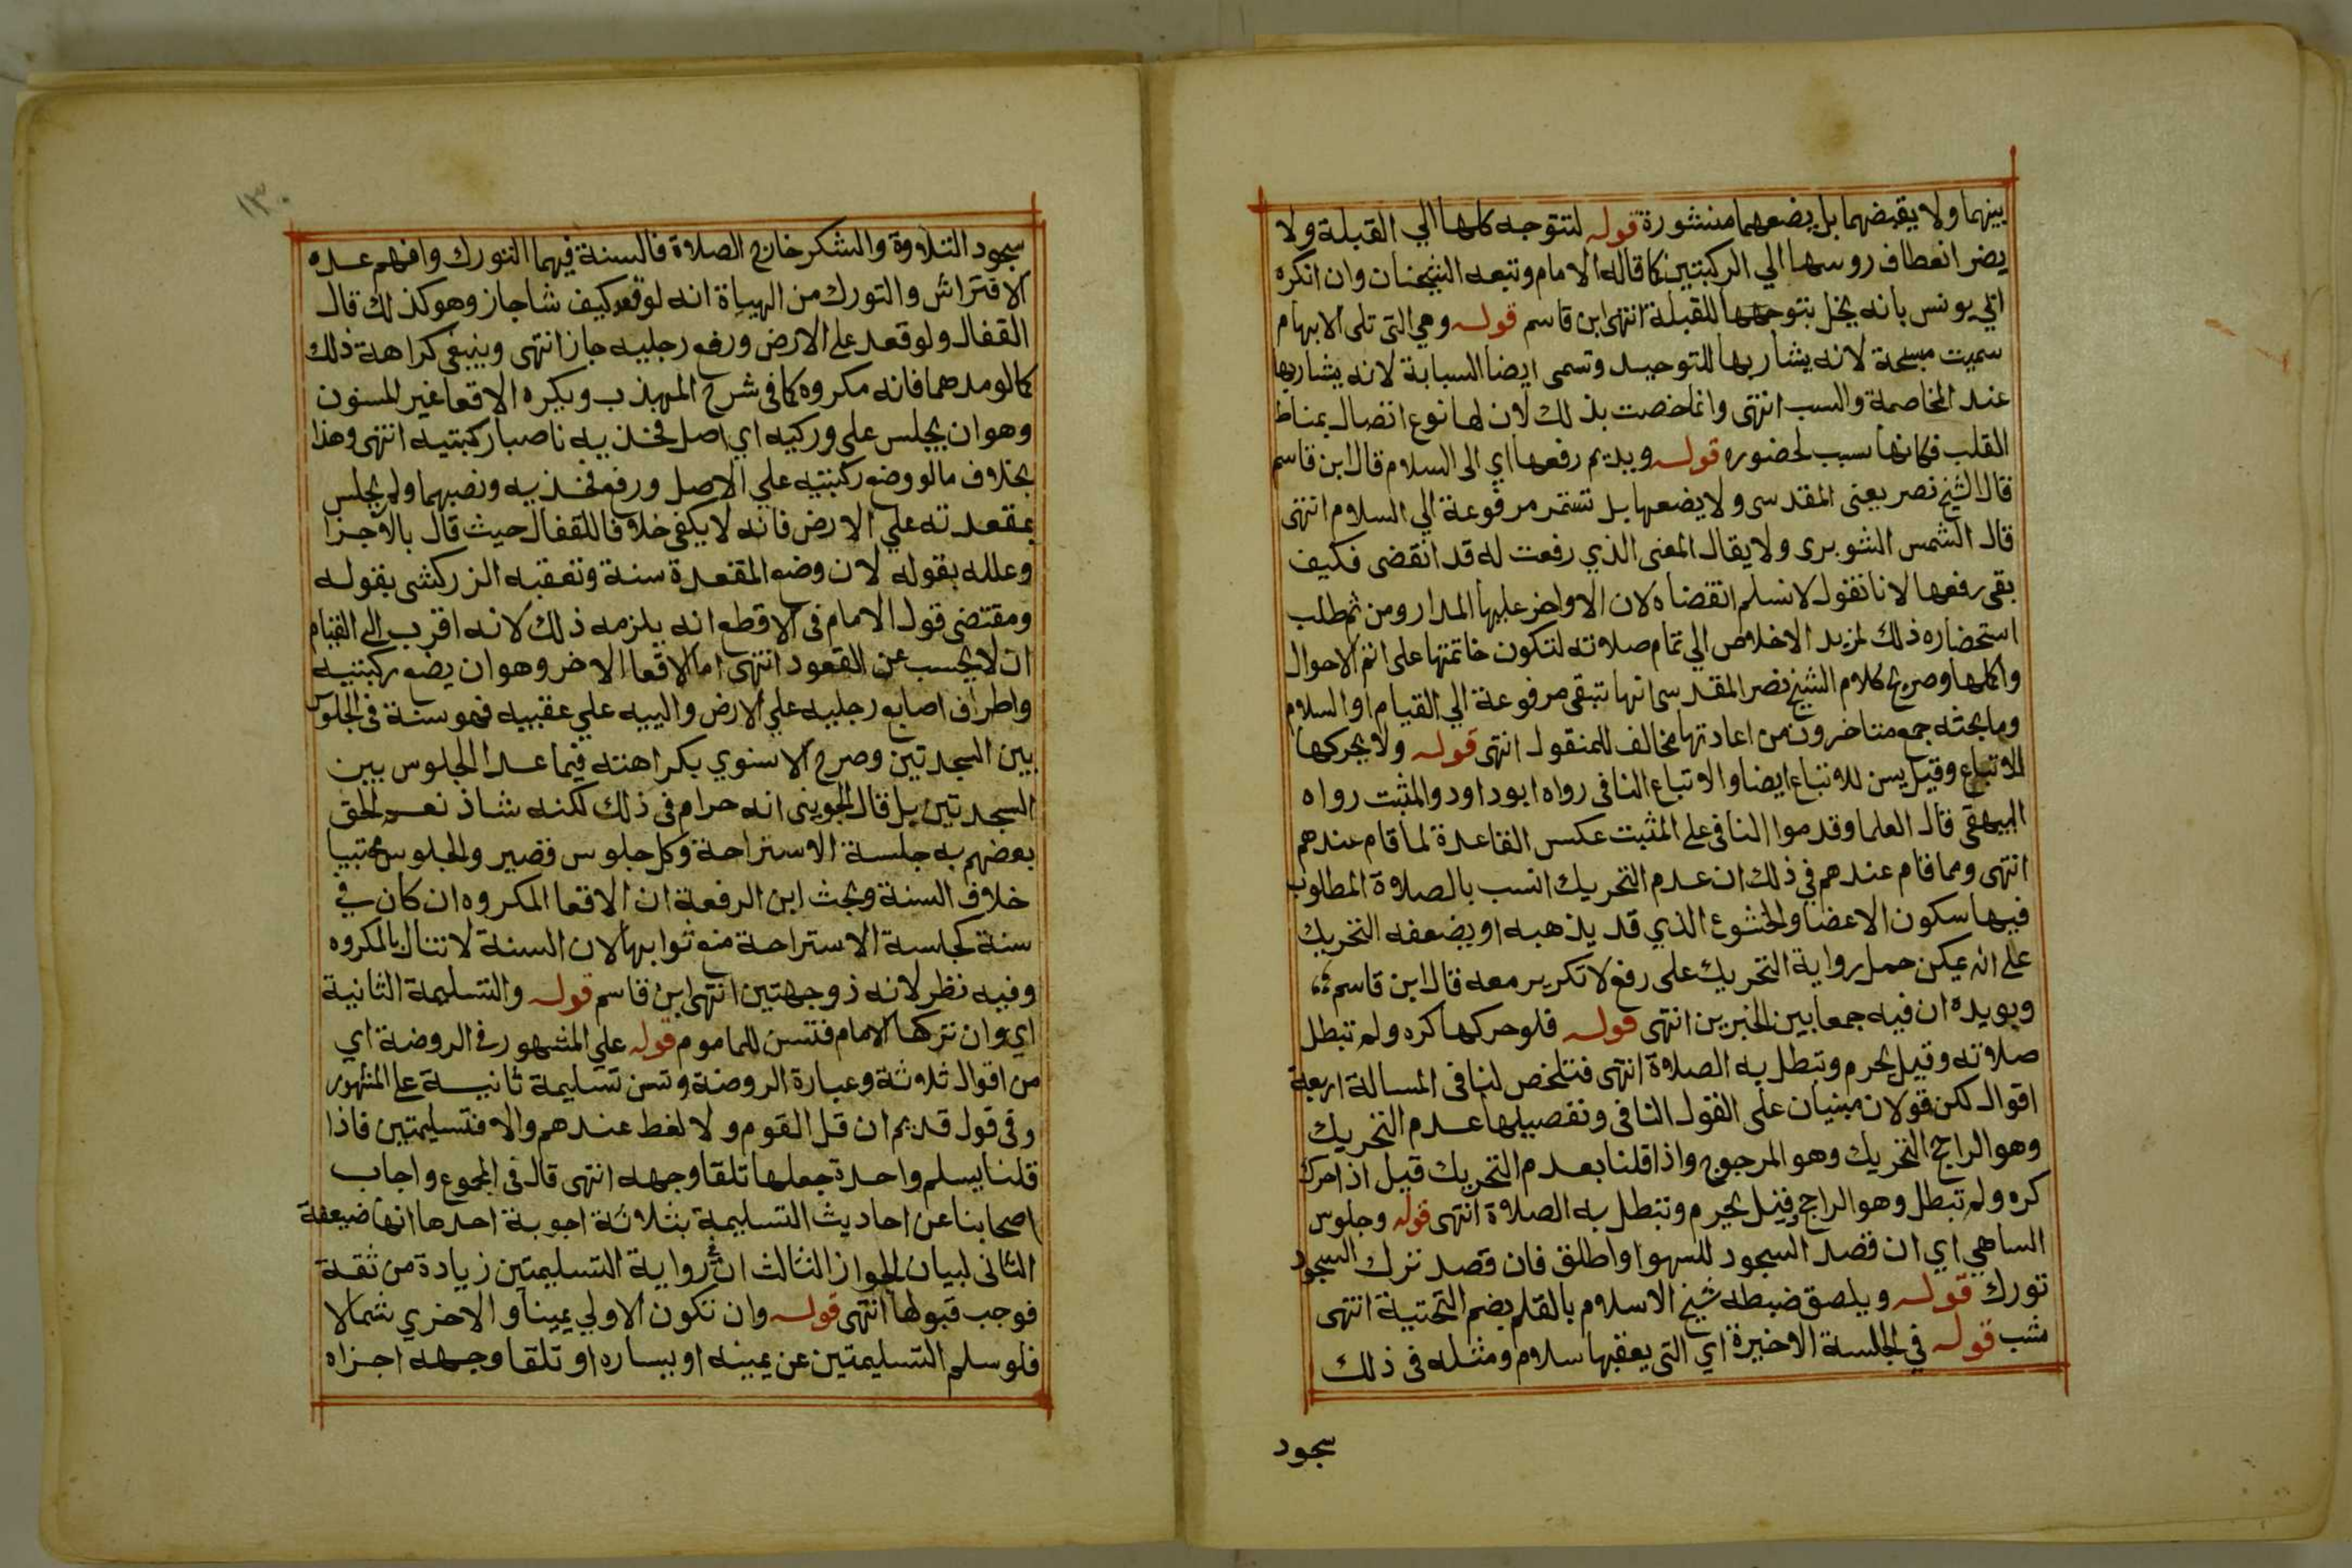 بينهما ولا يقبضهما بل يضعهما منشورة قوله لتتوجه كلها الي القبلة ولا
يضر انعطاف روسها الي الركبتين كما قاله الامام وتبعه الشيخان وان انكره
ابن يونس بانه يخل بتوجهها للقبلة انتهى ابن قاسم قوله وهي التى تلى الابهام
سميت مسبحة لانه يشار بها للتوحيد وتسمى ايضا السبابة لانه يشار بها
عند المخاصمة والسب انتهى وانما خصت بذلك لان لها نوع اتصال بمناط
القلب فكانها سبب لحضوره قوله ويديم رفعها اي الى السلام قال ابن قاسم
قال الشيخ نصر يعنى المقدسى ولا يضعها بل تستمر مرفوعة الي السلام انتهى
قال الشمس الشوبرى ولا يقال المعنى الذي رفعت له قد انقضى فكيف
بقى رفعها لانا نقول لا نسلم انقضاه لان الاواخر عليها المدار ومن ثم طلب
استحضاره ذلك لمزيد الاخلاص الي تمام صلاته لتكون خاتمتها على اتم الاحوال
واكملها وصريح كلام الشيخ نصر المقدسى انها تبقى مرفوعة الي القيام او السلام
وما بحثه جمع متاخرون من اعادتها مخالف للمنقول انتهى قوله ولا يحركها
للاتباع وقيل يسن للاتباع ايضا والاتباع النافى رواه ابو داود والمثبت رواه
البيهقى قال العلما وقدموا النافى على المثبت عكس القاعدة لما قام عندهم
انتهى ومما قام عندهم في ذلك ان عدم التحريك انسب بالصلاة المطلوب
فيها سكون الاعضا والخشوع الذي قد يذهبه او يضعفه التحريك
على انه يمكن حمل رواية التحريك على رفع لا تكرير معه قال ابن قاسم
ويويده ان فيه جمعا بين الخبرين انتهى قوله فلو حركها كره ولم تبطل
صلاته وقيل يحرم وتبطل به الصلاة انتهى فتلخص لنا فى المسالة اربعة
اقوال لكن قولان مبنيان على القول النافى وتفصيلها عدم التحريك
وهو الراجح التحريك وهو المرجوح واذا قلنا بعدم التحريك قيل اذا حرك
كره ولم تبطل وهو الراجح وقيل يحرم وتبطل به الصلاة انتهى قوله وجلوس
الساهي اي ان قصد السجود للسهو او اطلق فان قصد ترك السجود
تورك قوله ويلصق ضبطه شيخ الاسلام بالقلم بضم التحتية انتهى
شب قوله في الجلسة الاخيرة اي التى يعقبها سلام ومثله فى ذلك
سجود
١٣٠
سجود التلاوة والشكر خارج الصلاة فالسنة فيهما التورك وافهم عده
الافتراش والتورك من الهياة انه لو قعد كيف شا جاز وهو كذلك قال
القفال ولو قعد على الارض ورفع رجليه جاز انتهى وينبغى كراهة ذلك
كما لو مدهما فانه مكروه كما فى شرح المهذب ويكره الاقعا غير المسنون
وهو ان يجلس على وركيه اي اصل فخذيه ناصبا ركبتيه انتهى وهذا
بخلاف ما لو وضع ركبتيه علي الاصل ورفع فخذيه ونصبهما ولم يجلس
بمقعدته علي الارض فانه لا يكفى خلافا للقفال حيث قال بالاجزا
وعلله بقوله لان وضع المقعدة سنة وتعقبه الزركشى بقوله
ومقتضى قول الامام فى الاقطع انه يلزمه ذلك لانه اقرب الى القيام
ان لا يحسب عن القعود انتهى اما الاقعا الاخر وهو ان يضع ركبتيه
واطراف اصابع رجليه علي الارض واليبه علي عقبيه فهو سنة فى الجلوس
بين السجدتين وصرح الاسنوي بكراهته فيما عدا الجلوس بين
السجدتين بل قال الجوينى انه حرام فى ذلك لكنه شاذ نعم الحق
بعضهم به جلسة الاستراحة وكل جلوس قصير والجلوس محتبيا
خلاف السنة وبحث ابن الرفعة ان الاقعا المكروه ان كان في
سنة كجلسة الاستراحة منع ثوابها لان السنة لا تنال بالمكروه
وفيه نظر لانه ذو جهتين انتهى ابن قاسم قوله والتسليمة الثانية
اي وان تركها الامام فتسن للماموم قوله علي المشهور في الروضة اي
من اقوال ثلاثة وعبارة الروضة وتسن تسليمة ثانية على المشهور
وفى قول قديم ان قل القوم ولا لغط عندهم والا فتسليمتين فاذا
قلنا يسلم واحدة جعلها تلقا وجهه انتهى قال فى المجموع واجاب
اصحابنا عن احاديث التسليمة بثلاثة اجوبة احدها انها ضعيفة
الثانى لبيان الجواز الثالث ان في رواية التسليمتين زيادة من ثقة
فوجب قبولها انتهى قوله وان تكون الاولي يمينا والاخري شمالا
فلو سلم التسليمتين عن يمينه او يساره او تلقا وجهه اجزاه